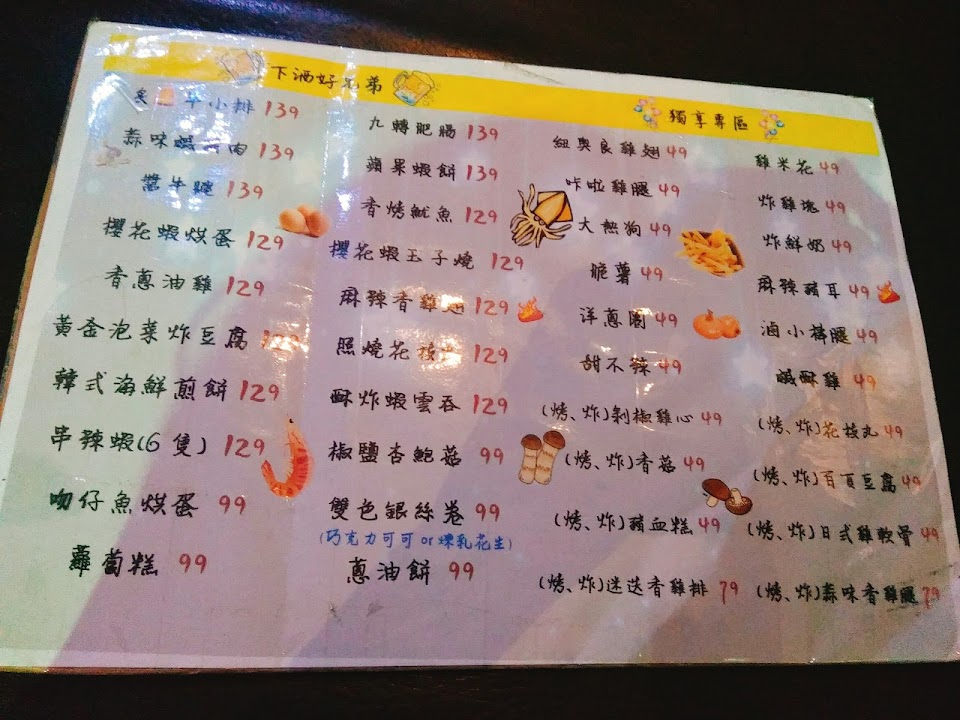 下酒好兄弟
牛小排 139
蒜味鹹豬肉 139
醬牛腱 139
櫻花蝦烘蛋 129
香蔥油雞 129
黃金泡菜炸豆腐 129
韓式海鮮煎餅 129
串辣蝦(6 隻) 129
吻仔魚烘蛋 99
蘿蔔糕 99
九轉肥腸 139
蘋果蝦餅 139
香烤魷魚 129
櫻花蝦玉子燒 129
麻辣香雞翅 129
照燒花枝 129
酥炸蝦雲吞 129
椒鹽杏鮑菇 99
雙色銀絲卷 99
(巧克力可可 or 煉乳花生)
蔥油餅 99
獨享專區
紐奧良雞翅 49
咔啦雞腿 49
大熱狗 49
脆薯 49
洋蔥圈 49
甜不辣 49
(烤、炸)剝椒雞心 49
(烤、炸)香菇 49
(烤、炸)豬血糕 49
(烤、炸)迷迭香雞排 79
雞米花 49
炸雞塊 49
炸鮮奶 49
麻辣豬耳 49
滷小棒腿 49
鹹酥雞 49
(烤、炸)花枝丸 49
(烤、炸)百頁豆腐 49
(烤、炸)日式雞軟骨 49
(烤、炸)蒜味香雞腿 79